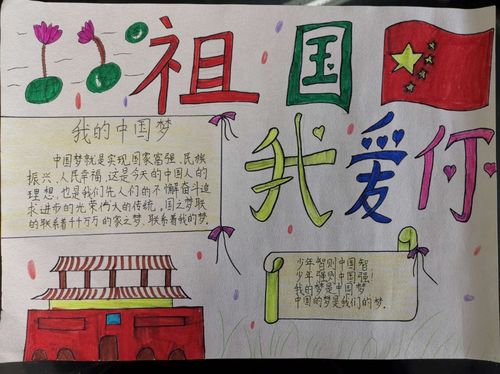 祖国
我爱你
我的中国梦
中国梦就是实现国家富强、民族
振兴、人民幸福,这是今天的中国人的
理想,也是我们先人们的不懈奋斗追
求进步的光荣伟大的传统,国之梦联
的联系着千千万万的家之梦,联系着我的梦,
少年智则中国智
少年强则中国强!
我的梦是中国梦
中国的梦是我们的梦.